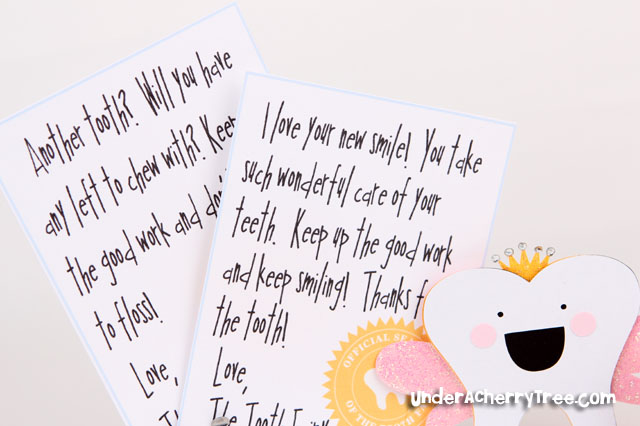 Another tooth? Will you have
any left to chew with? Keep
the good work and don't
to floss!
Love,
I love your new smile! You take
such wonderful care of your
teeth. Keep up the good work
and keep smiling! Thanks f
the tooth!
Love,
The Tooth Fairy
OFFICIAL SE
OF THE
underAcherryTree.com